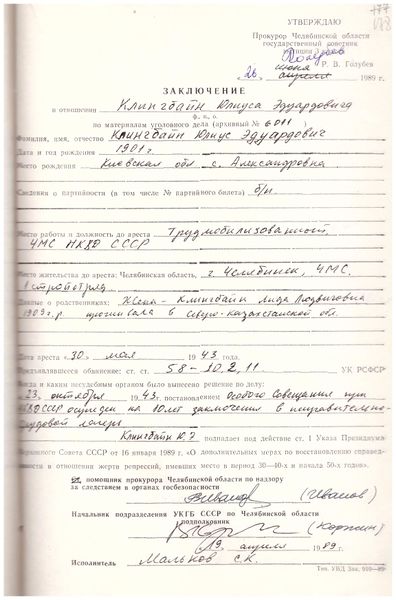 177
178
УТВЕРЖДАЮ
Прокурор Челябинской области
государственный советник
юстиции 3 класса
Р. В. Голубев
«26» июня
апреля 1989 г.
ЗАКЛЮЧЕНИЕ
в отношении Клингбайн Юлиуса Эдуардовича
ф., и., о.
по материалам уголовного дела (архивный № 6011
Фамилия, имя, отчество Клингбайн Юлиус Эдуардович
Дата и год рождения 1901 г.
Место рождения Киевская обл с. Александровка
Сведения о партийности (в том числе № партийного билета) б/п
Место работы и должность до ареста Трудмобилизованный,
ЧМС НКВД СССР
Место жительства до ареста: Челябинская область, г. Челябинск, ЧМС,
стройотряд
Данные о родственниках: Жена - Клингбайн Лида Людвиговна
1909 г.р. проживала в Северо-Казахстанской обл.
Дата ареста «30» мая 1943 года.
Предъявлявшееся обвинение: ст. ст. 58-10 ч.2, 11 УК РСФСР
Когда и каким несудебным органом было вынесено решение по делу:
23 октября 1943 г. постановлением Особого Совещания при
НКВД СССР осужден на 10 лет заключения в исправительно-
трудовой лагерь
Клингбайн Ю.Э. подпадает под действие ст. 1 Указа Президиума
Верховного Совета СССР от 16 января 1989 г. «О дополнительных мерах по восстановлению справед-
ливости в отношении жертв репрессий, имевших место в период 30—40-х и начала 50-х годов».
помощник прокурора Челябинской области по надзору
за следствием в органах госбезопасности
(Иванов)
Начальник подразделения УКГБ СССР по Челябинской области
подполковник
19 апреля 1989 г.
Исполнитель Мальков С.К.
Тип. УВД Зак.